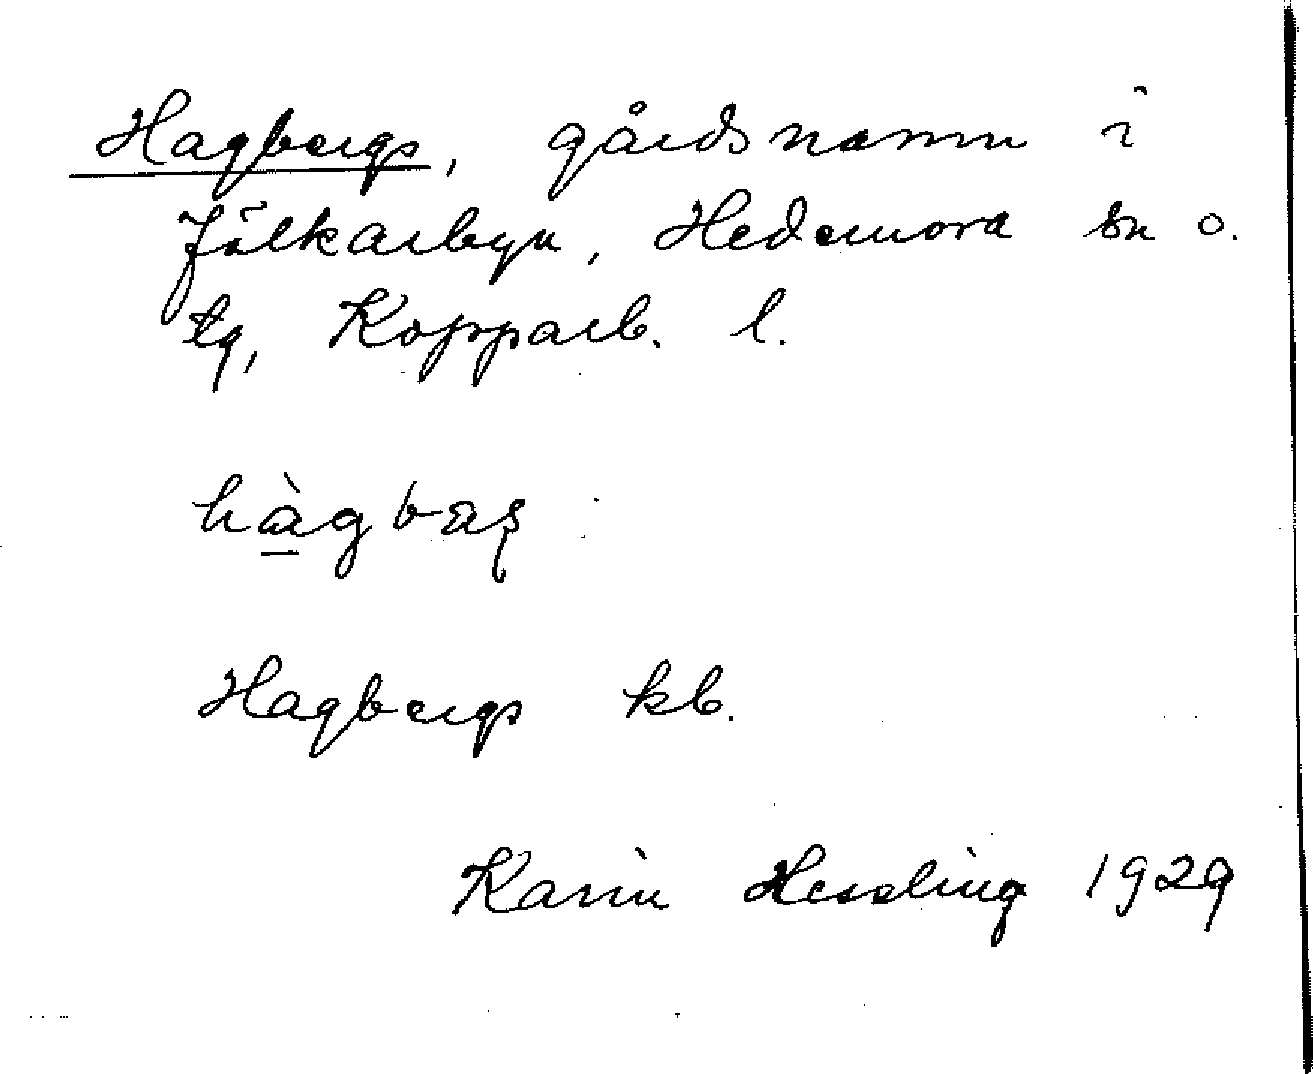 Hagbergs, gårdsnamn i
Jälkarbyn, Hedemora sn o.
tg, Kopparb. l.
hàgbaʂ
Hagbergs kb.
Karin Hessling 1929